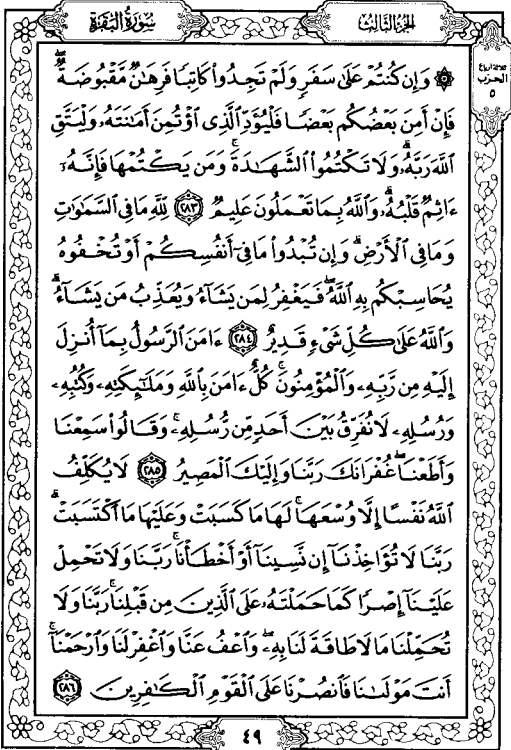 سُورَةُ البَقَرَةِ
الجزء الثالث
ثلاثة أرباع
الحزب
٥
۞ وَإِن كُنتُمْ عَلَىٰ سَفَرٍ وَلَمْ تَجِدُوا۟ كَاتِبًا فَرِهَـٰنٌ مَّقْبُوضَةٌ ۖ
فَإِنْ أَمِنَ بَعْضُكُم بَعْضًا فَلْيُؤَدِّ ٱلَّذِى ٱؤْتُمِنَ أَمَـٰنَتَهُۥ وَلْيَتَّقِ
ٱللَّهَ رَبَّهُۥ ۗ وَلَا تَكْتُمُوا۟ ٱلشَّهَـٰدَةَ ۚ وَمَن يَكْتُمْهَا فَإِنَّهُۥٓ
ءَاثِمٌ قَلْبُهُۥ ۗ وَٱللَّهُ بِمَا تَعْمَلُونَ عَلِيمٌ ٢٨٣ لِّلَّهِ مَا فِى ٱلسَّمَـٰوَٰتِ
وَمَا فِى ٱلْأَرْضِ ۗ وَإِن تُبْدُوا۟ مَا فِىٓ أَنفُسِكُمْ أَوْ تُخْفُوهُ
يُحَاسِبْكُم بِهِ ٱللَّهُ ۖ فَيَغْفِرُ لِمَن يَشَآءُ وَيُعَذِّبُ مَن يَشَآءُ ۗ
وَٱللَّهُ عَلَىٰ كُلِّ شَىْءٍ قَدِيرٌ ٢٨٤ ءَامَنَ ٱلرَّسُولُ بِمَآ أُنزِلَ
إِلَيْهِ مِن رَّبِّهِۦ وَٱلْمُؤْمِنُونَ ۚ كُلٌّ ءَامَنَ بِٱللَّهِ وَمَلَـٰٓئِكَتِهِۦ وَكُتُبِهِۦ
وَرُسُلِهِۦ لَا نُفَرِّقُ بَيْنَ أَحَدٍ مِّن رُّسُلِهِۦ ۚ وَقَالُوا۟ سَمِعْنَا
وَأَطَعْنَا ۖ غُفْرَانَكَ رَبَّنَا وَإِلَيْكَ ٱلْمَصِيرُ ٢٨٥ لَا يُكَلِّفُ
ٱللَّهُ نَفْسًا إِلَّا وُسْعَهَا ۚ لَهَا مَا كَسَبَتْ وَعَلَيْهَا مَا ٱكْتَسَبَتْ ۗ
رَبَّنَا لَا تُؤَاخِذْنَآ إِن نَّسِينَآ أَوْ أَخْطَأْنَا ۚ رَبَّنَا وَلَا تَحْمِلْ
عَلَيْنَآ إِصْرًا كَمَا حَمَلْتَهُۥ عَلَى ٱلَّذِينَ مِن قَبْلِنَا ۚ رَبَّنَا وَلَا
تُحَمِّلْنَا مَا لَا طَاقَةَ لَنَا بِهِۦ ۖ وَٱعْفُ عَنَّا وَٱغْفِرْ لَنَا وَٱرْحَمْنَآ ۚ
أَنتَ مَوْلَىٰنَا فَٱنصُرْنَا عَلَى ٱلْقَوْمِ ٱلْكَـٰفِرِينَ ٢٨٦
٤٩